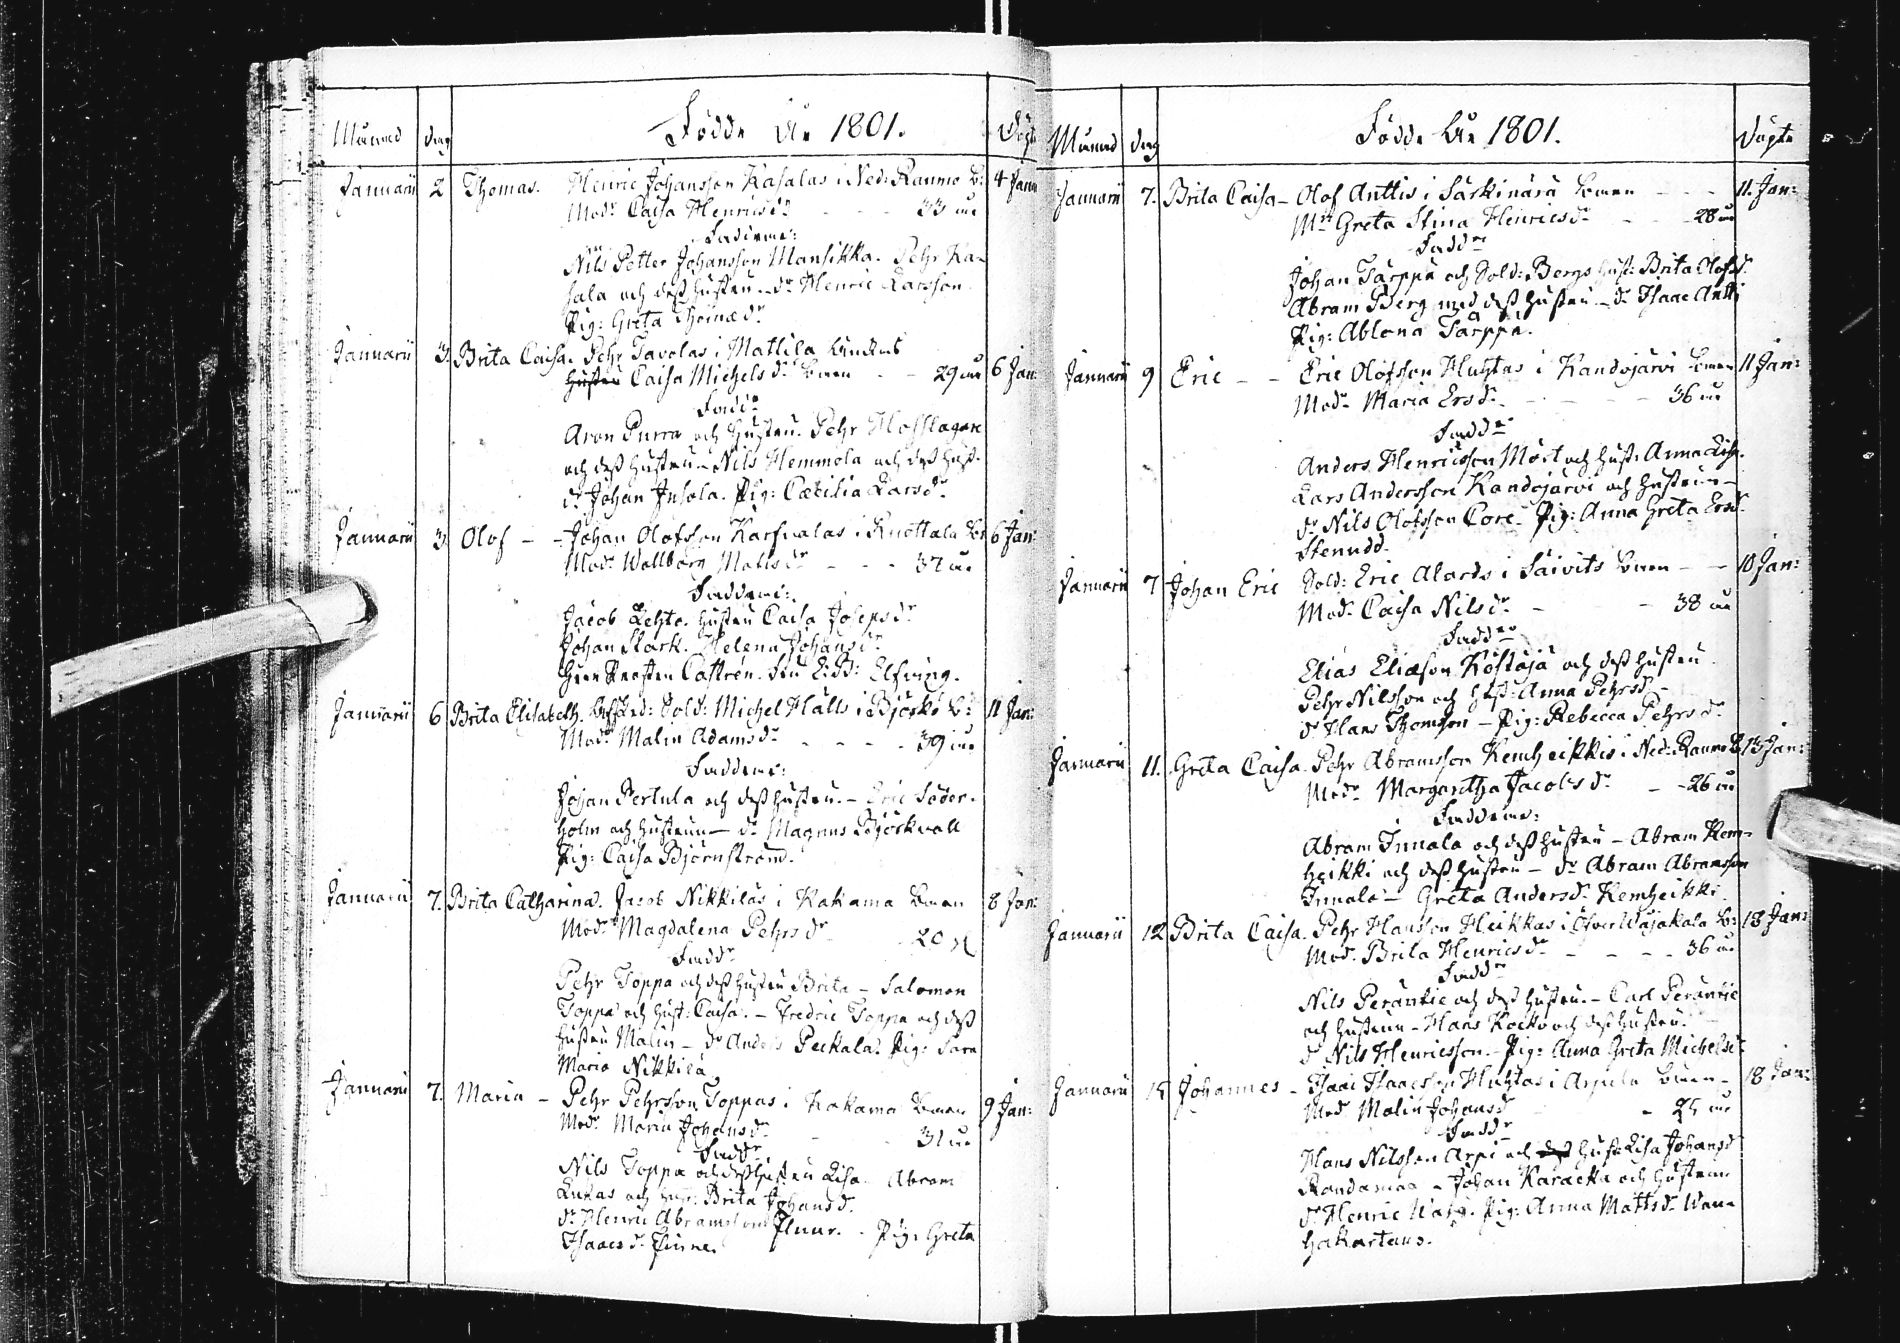 Månad dag Födde År 1801. Döpt
Januarii 2 Thomas. Henric Johansson Kasalas i Ned: Raumo B: 4 Janu
Modr Caisa Henricsdr - - - 33 år
Faddrarne:
Nils Petter Johansson Mansikka. Pehr Ka-
sala och dess hustru. dr Henric Larsson.
Pig: Greta Thomædr
Januarii 3. Brita Caisa. Pehr Tavolas i Mattila
hustru Caisa Michelsdr - - 29 år 6 Jan:
Faddr
Aron Purra och hustru. Pehr Hofslagare
och dess hustru. Nils Hemmola och dess hust.
dr Johan Juhola. Pig: Cæcilia Larsdr
Januarii 3. Olof - - Johan Olofsson Karsualas i Knottala B: 6 Jan:
Modr Wallborg Mattsdr - - - 37 år
Faddrarne:
Jacob Lehto. hustru Caisa Josepsdr
Johan Stark. Helena Johansdr
Castrén. Elfving.
Januarii 6 Brita Elisabeth. Sold: Michel Hälls i Björkö B: 11 Jan:
Modr Malin Adamsdr - - - - 39 år
Faddrarne:
Johan Pertula och dess hustru. - Eric Söder-
holm och hustrun - dr Magnus Björkvall
Pig: Caisa Björnström.
Januarii 7. Brita Catharina. Jacob Nikkilas i Kakama 8 Jan:
Modr Magdalena Pehrsdr 20
Faddr
Pehr Toppa och dess hustru Brita - Salomon
Toppa och hust: Caisa. - Fredric Toppa och dess
hustru Malin - dr Anders Peckala. Pig: Sara
Maria Nikkilä.
Januarii 7. Maria - Pehr Pehrsson Toppas i Kakama 9 Jan:
Modr Maria Johansdr 31 år
Faddr
Nils Toppa och dess hustru Lisa. Abram
Lukas och hust: Brita Johansdr
dr Henric Abramsson Pig: Greta
Isaacsdr
Månad dag Födde År 1801. Döpte
Januarii 7. Brita Caisa - Olof Anttis i Särkinärä - - - 11 Jan:
Mr Greta Stina Henricsdr - - 28 år
Faddr
Johan Tärppä och Sold: Bergs hust: Brita Olofsd.
Abram Berg med dess hustru - dr Isaac Antti
Pig: Ablona Tärppä.
Januarii 9 Eric - - Eric Olofsson Huhtas i Kandojärvi 11 Jan:
Modr Maria Ersdr - - - - 36 år
Faddr
Anders Henricsson Mört och hust: Anna Lisa.
Lars Andersson Kandojärvi och hustrun -
dr Nils Olofsson Core - Pig: Anna Greta Ersdr
Stenudd.
Januarii 7 Johan Eric Sold: Eric Alards i Säivits - - 10 Jan:
Modr Caisa Nilsdr - - 38 år
Faddr
Elias Eliæson Köstäjä och dess hustru.
Pehr Nilsson och hust: Anna Pehrsd -
dr Hans Thomson - Pig: Rebecca Pehrsdr
Januarii 11. Greta Caisa. Pehr Abramsson Kemheikkis i Ned: Raumo B. 13 Jan:
Modr Margaretha Jacobsdr - - 26 år
Faddrarne:
Abram Innala och dess hustru - Abram Kem-
heikki och dess hustru - dr Abram Abramsson
Innala - Greta Andersdr Kemheikki.
Januarii 12 Brita Caisa. Pehr Hansson Heikkas i Öfver Wojakala B: 18 Jan:
Modr Brita Henricsdr - - - - 36 år
Faddr
Nils Peräntie och dess hustru. - Carl Peräntie
och hustrun - Hans Kocko och dess hustru.
dr Nils Henricsson. - Pig: Anna Greta Michelsdr
Januarii Johannes - Isaac Isaacsson Huhtas i Arpela - 18 Jan:
Modr Malin Johansd - år
Faddr
Hans Nilsson Arpi och dess hust: Lisa Johansdr
Johan Karacka och hustrun
dr Henric Pig: Anna Mattsdr